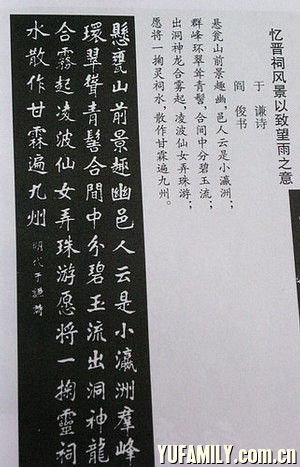 忆晋祠风景以致望雨之意
于 谦诗
阎 俊书
悬瓮山前景趣幽,邑人云是小瀛洲;
群峰环翠耸青髻,合间中分碧玉流;
出洞神龙合雾起,凌波仙女弄珠游;
愿将一掬灵祠水,散作甘霖遍九州。
懸甕山前景趣幽邑人云是小瀛洲羣峰
環翠聳青髻合間中分碧玉流出洞神龍
合霧起凌波仙女弄珠游愿将一掬靈祠
水散作甘霖遍九州 明代于謙詩
YUFAMILY.com.cn